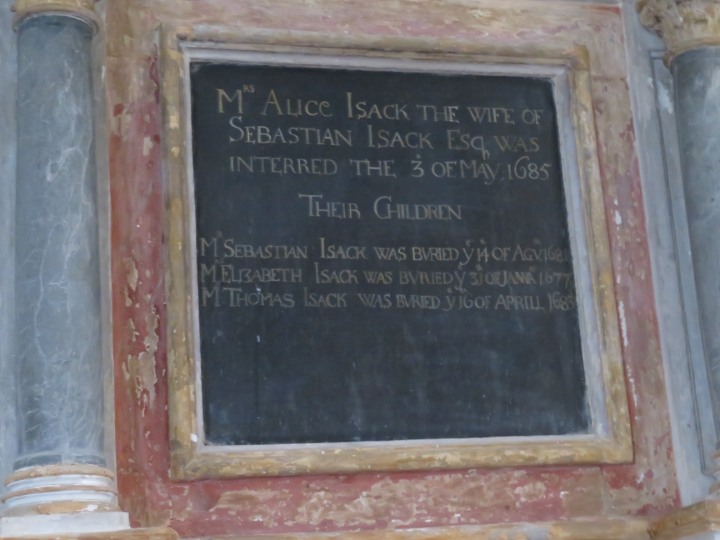 Mrs Alice Isack the wife of
Sebastian Isack Esq. was
interred the 3 of May 1685
Their Children
Mr Sebastian Isack was buried ye 14 of Agu
Mrs Elizabeth Isack was buried ye 31 of Janua 1677
Mr Thomas Isack was buried ye 16 of Aprill